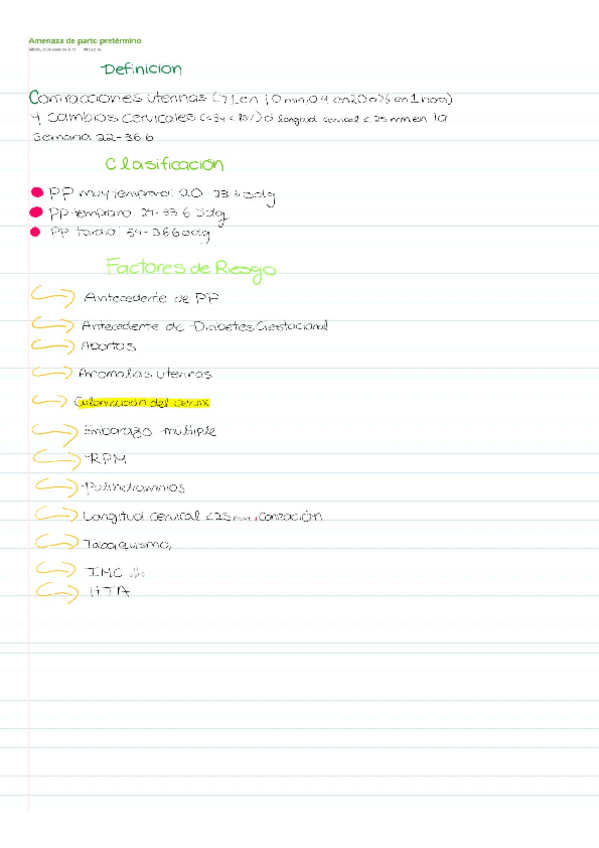 Amenaza de parto pretérmino
Definicion
Contracciones uterinas (>1 en 10 min, o 4 en 20 o 6 en 1 hora)
y cambios cervicales o longitud cervical < 25 mm en la
semana 22-36.6
Clasificación
PP muy temprano: 20-23.6 sdg
PP temprano: 24-33.6 sdg
PP tardio: 34-36.6 sdg
Factores de Riesgo
Antecedente de PP
Antecedente de Diabetes Gestacional
Abortos
Anomalias uterinas
del cervix
Embarazo multiple
RPM
Polihidramnios
Longitud cervical <25 mm, conización
Tabaquismo,
IMC
HTA